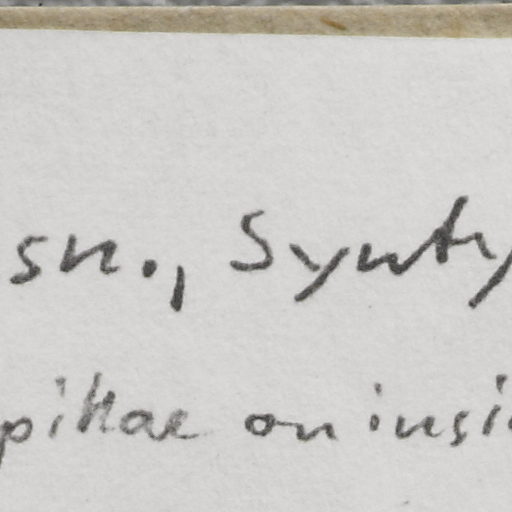 sn., Synty
pillae on insi